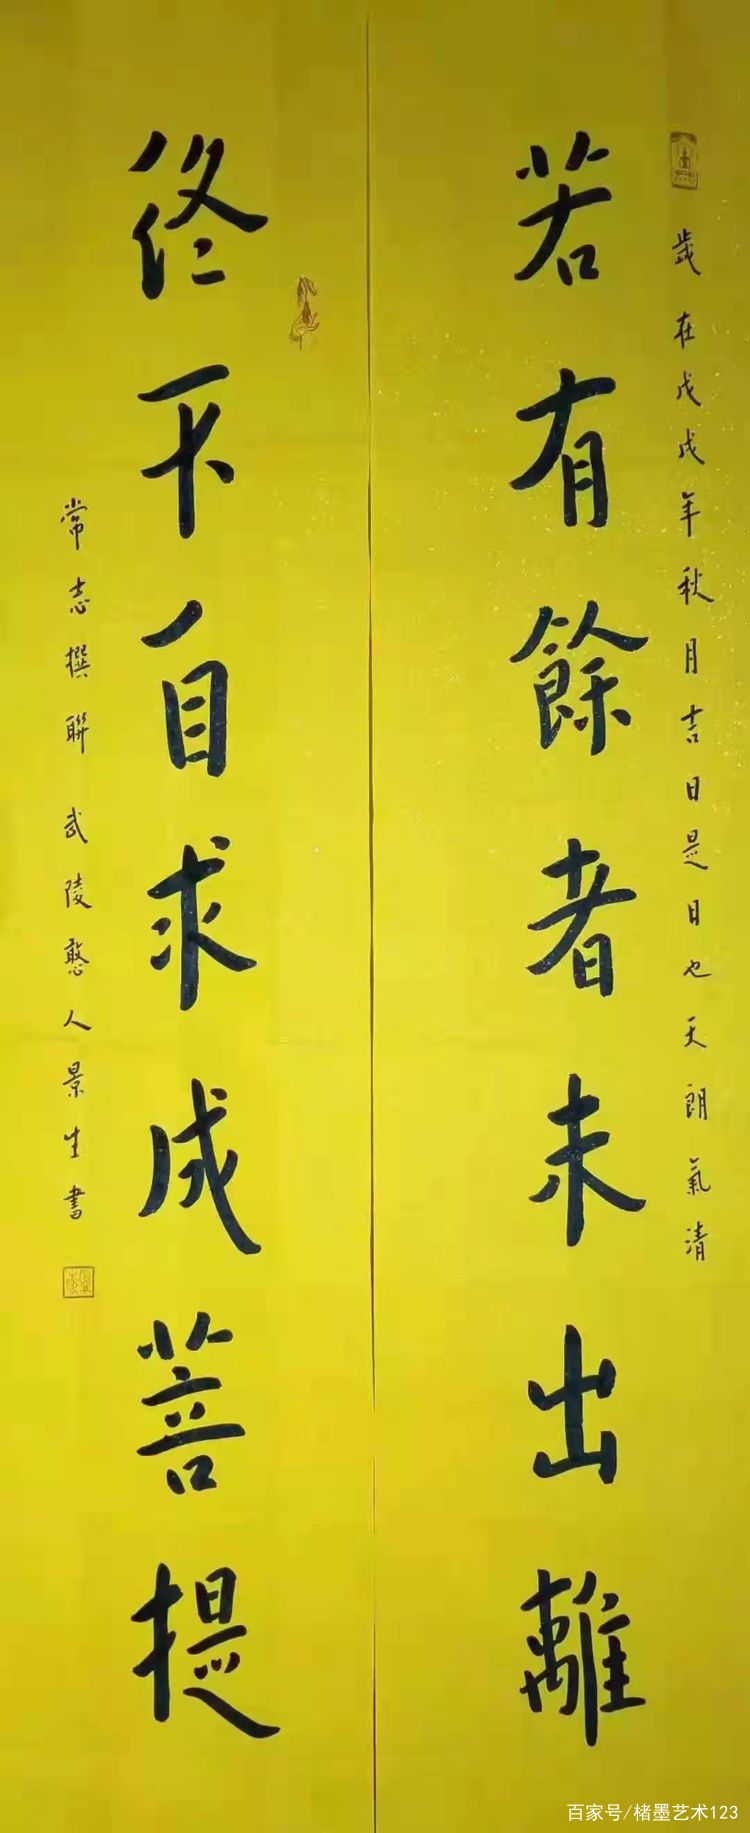 歲在戊戌年秋月吉日是日也天朗氣清
若有餘者未出離
終不自求成菩提
常志撰聯 武陵憨人景生書
百家号/楮墨艺术123